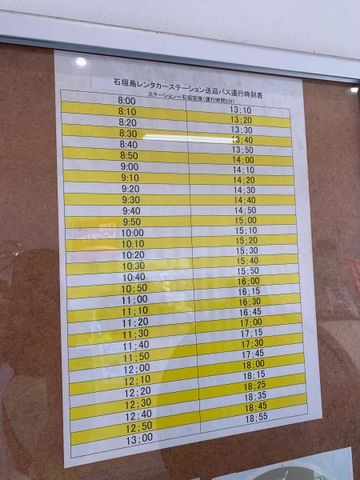 石垣島レンタカーステーション送迎バス運行時刻表
ステーション～石垣空港(運行時間 分)
8:00 13:10
8:10 13:20
8:20 13:30
8:30 13:40
8:40 13:50
8:50 14:00
9:00 14:10
9:10 14:20
9:20 14:30
9:30 14:40
9:40 14:50
9:50 15:00
10:00 15:10
10:10 15:20
10:20 15:30
10:30 15:40
10:40 15:50
10:50 16:00
11:00 16:15
11:10 16:30
11:20 16:45
11:30 17:00
11:40 17:15
11:50 17:30
12:00 17:45
12:10 18:00
12:20 18:15
12:30 18:25
12:40 18:35
12:50 18:45
13:00 18:55